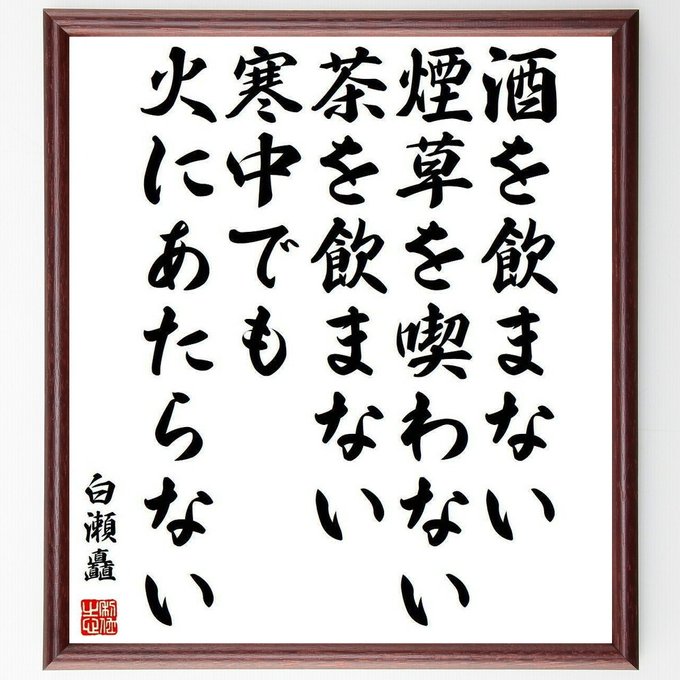 酒を飲まない
煙草を喫わない
茶を飲まない
寒中でも
火にあたらない
白瀬矗